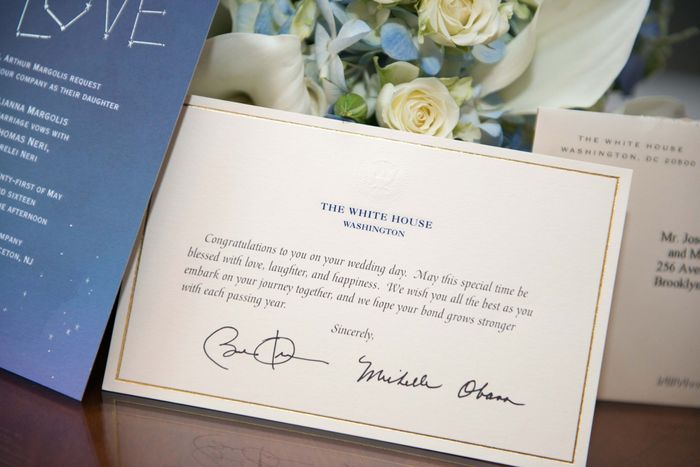 LOVE
ARTHUR MARGOLIS REQUEST
OUR COMPANY AS THEIR DAUGHTER
MARGOLIS
VOWS WITH
NERI,
NERI
OF MAY
SIXTEEN
AFTERNOON
NJ
THE WHITE HOUSE
WASHINGTON
Congratulations to you on your wedding day. May this special time be
blessed with love, laughter, and happiness. We wish you all the best as you
embark on your journey together, and we hope your bond grows stronger
with each passing year.
Sincerely,
Michelle Obama
THE WHITE HOUSE
WASHINGTON, DC 20500
Mr.
and
256
Brooklyn